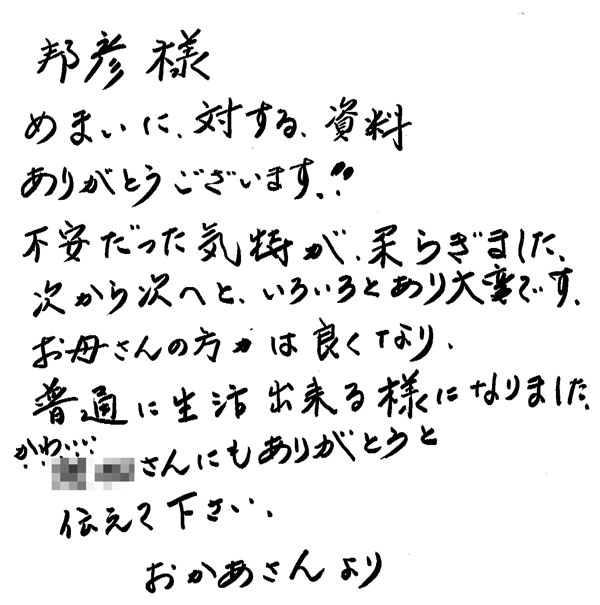 邦彦様
めまいに、対する、資料
ありがとうございます。!!
不安だった気持が、柔らぎました、
次から次へと、いろいろとあり大変です、
お母さんの方かは良くなり、
普通に生活出来る様になりました、
かわ、、、、
さんにもありがとうと
伝えて下さい、
おかあさんより